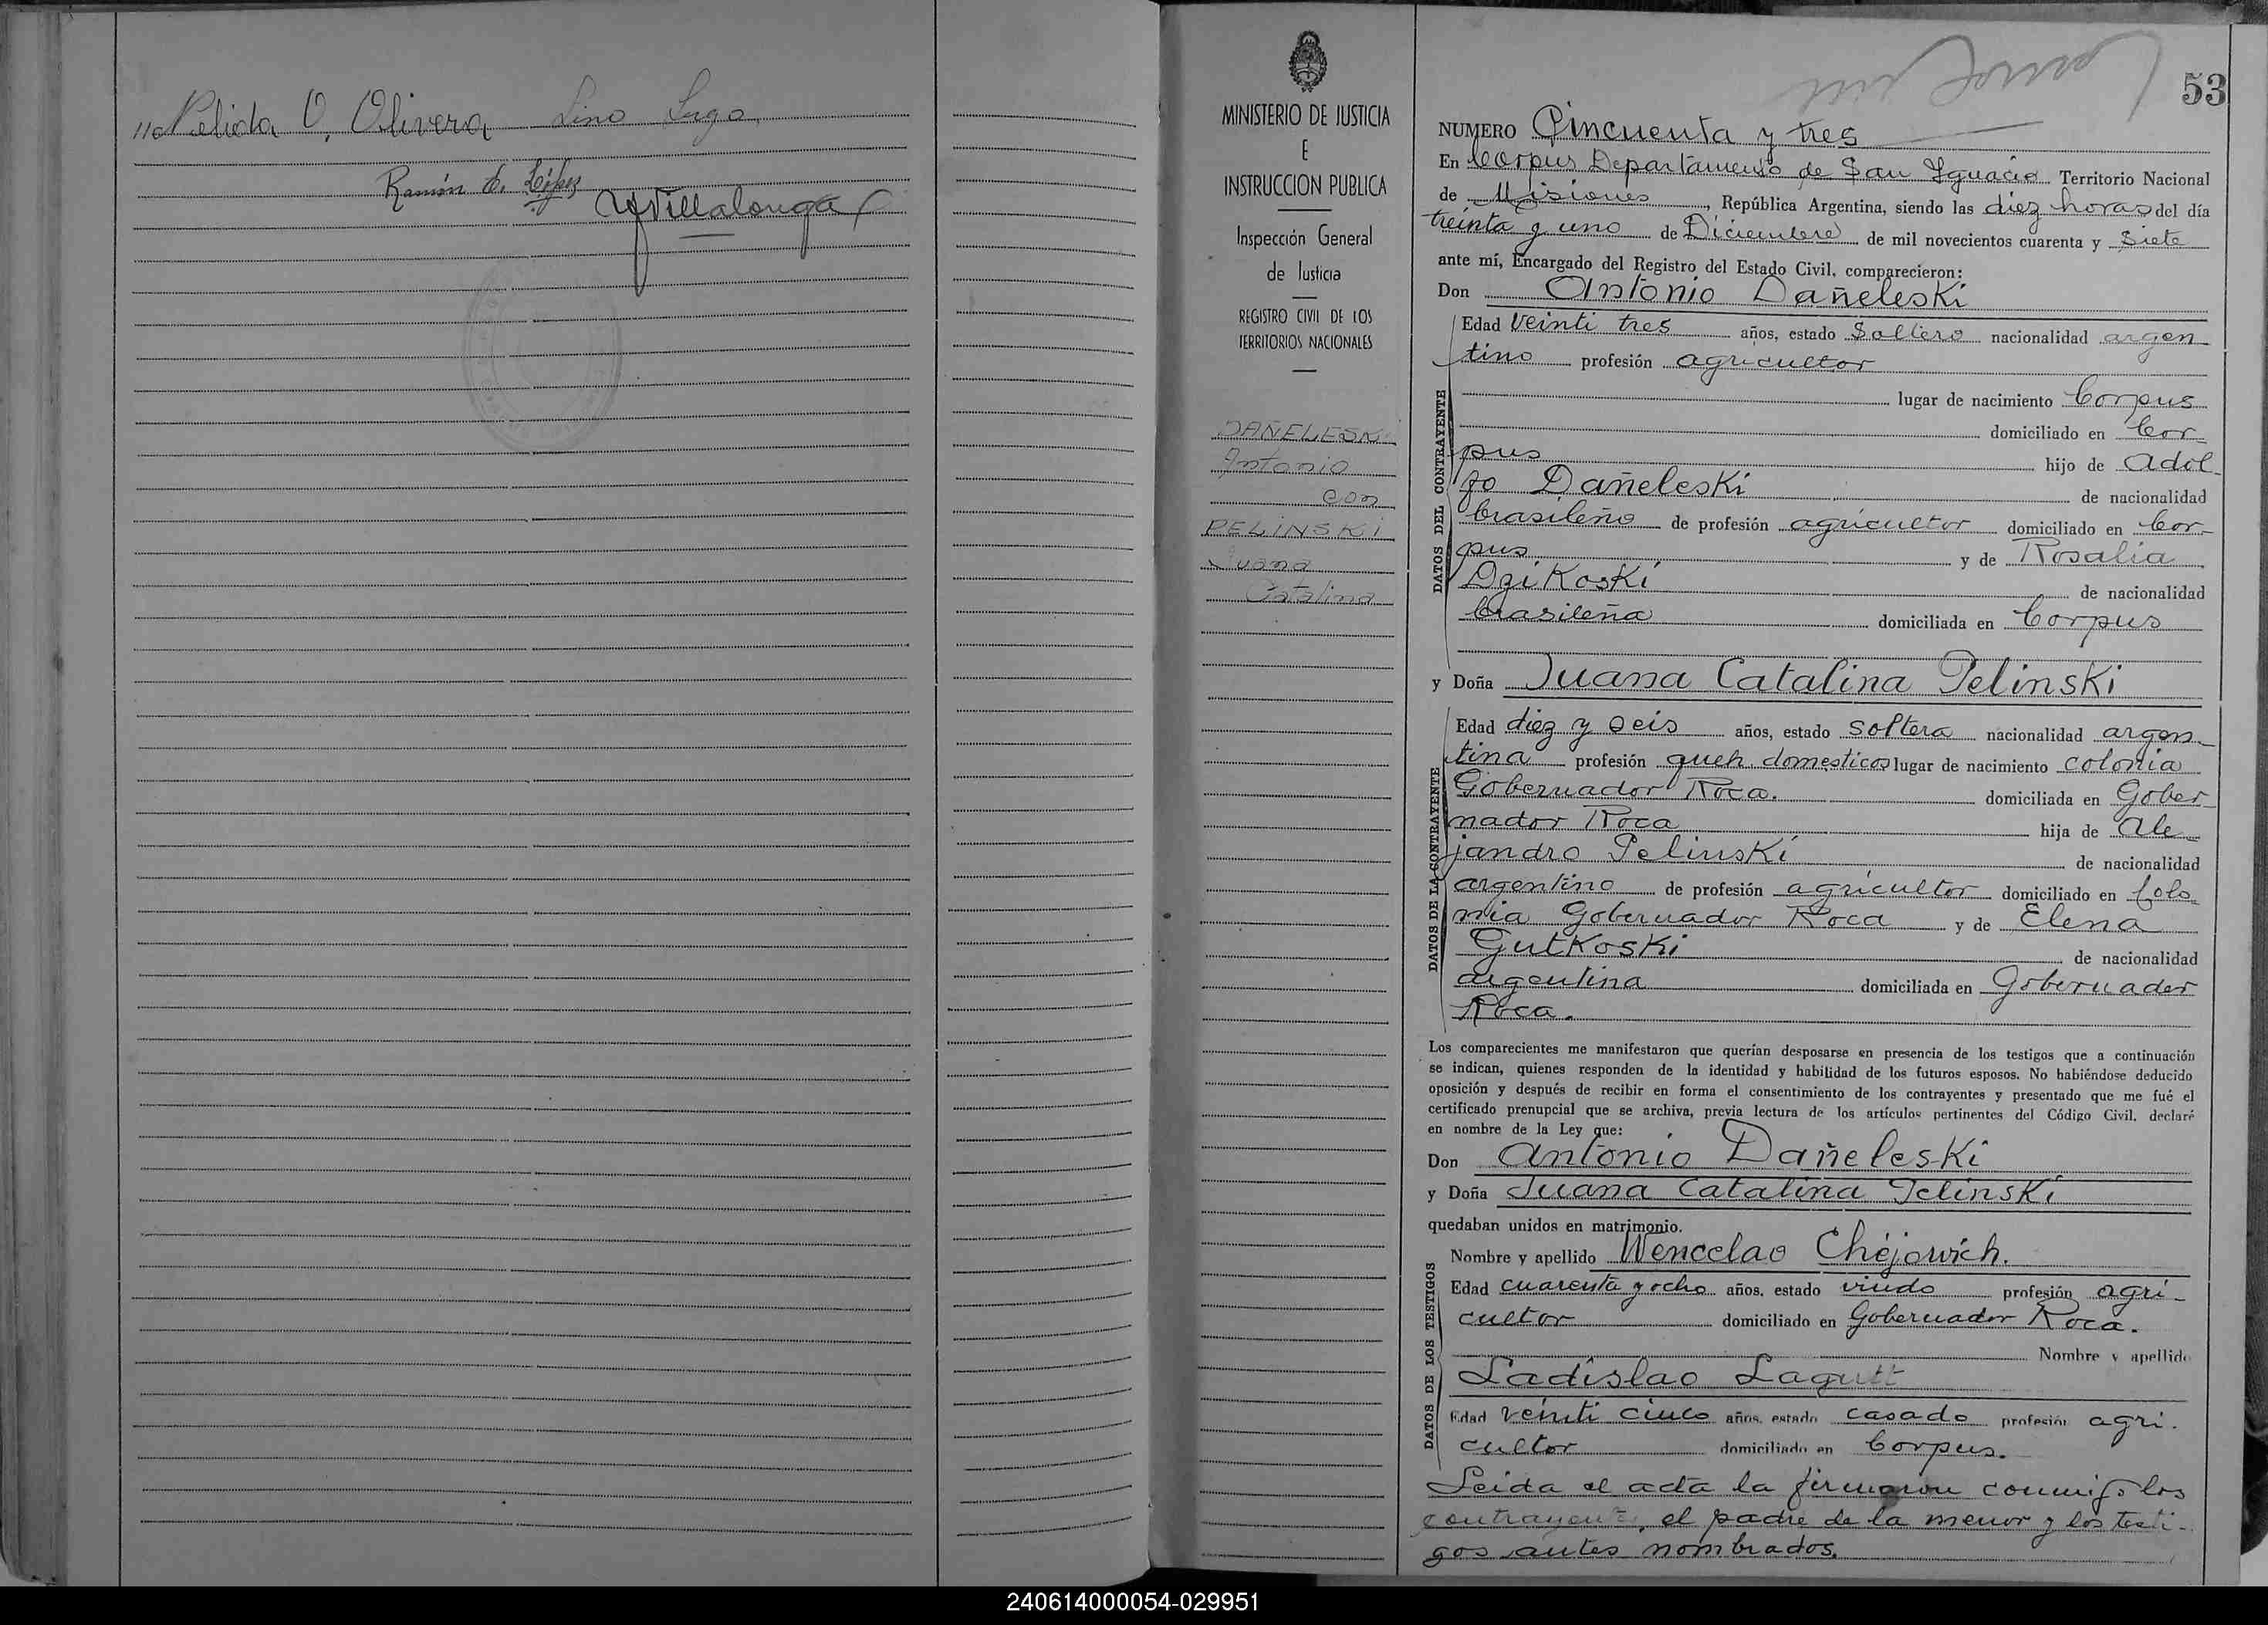 "Nelida O. Olivera Lino Lugo
Ramón E. López
Villalonga
MINISTERIO DE JUSTICIA
E
INSTRUCCION PUBLICA
Inspección General
de Justicia
REGISTRO CIVIL DE LOS
TERRITORIOS NACIONALES
DAÑELESKI
Antonio
con
PELINSKI
Juana
Catalina
53
NUMERO Cincuenta y tres
En Corpus Departamento de San Ignacio Territorio Nacional
de Misiones, República Argentina, siendo las diez horas del día
treinta y uno de Diciembre de mil novecientos cuarenta y siete
ante mí, Encargado del Registro del Estado Civil, comparecieron:
Don Antonio Dañeleski
DATOS DEL CONTRAYENTE
Edad Veinti tres años, estado Soltero nacionalidad argen
tino profesión agricultor
lugar de nacimiento Corpus
domiciliado en Cor-
pus hijo de Adol-
fo Dañeleski de nacionalidad
brasileño de profesión agricultor domiciliado en Cor-
pus y de Rosalia
Dzikoski de nacionalidad
brasileña domiciliada en Corpus
y Doña Juana Catalina Pelinski
DATOS DE LA CONTRAYENTE
Edad diez y seis años, estado soltera nacionalidad argen-
tina profesión queh. domesticos lugar de nacimiento colonia
Gobernador Roca. domiciliada en Gober-
nador Roca hija de Ale
jandro Pelinski de nacionalidad
argentino de profesión agricultor domiciliado en Colo
nia Gobernador Roca y de Elena
Gutkoski de nacionalidad
argentina domiciliada en Gobernador
Roca.
Los comparecientes me manifestaron que querían desposarse en presencia de los testigos que a continuación
se indican, quienes responden de la identidad y habilidad de los futuros esposos. No habiéndose deducido
oposición y después de recibir en forma el consentimiento de los contrayentes y presentado que me fué el
certificado prenupcial que se archiva, previa lectura de los artículos pertinentes del Código Civil, declaré
en nombre de la Ley que:
Don Antonio Dañeleski
y Doña Juana Catalina Pelinski
quedaban unidos en matrimonio.
DATOS DE LOS TESTIGOS
Nombre y apellido Wencelao Chéjovich.
Edad cuarenta y ocho años, estado viudo profesión agri-
cultor domiciliado en Gobernador Roca.
Nombre y apellido
Ladislao Lagutt
Edad veinti cinco años, estado casado profesión agri.
cultor domiciliado en Corpus.
Leida el acta la firmaron conmigo los
contrayentes, el padre de la menor y los testi-
gos antes nombrados.
240614000054-029951